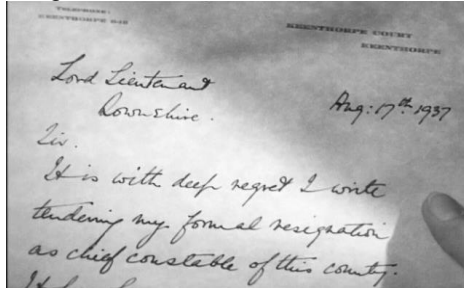 TELEPHONE:
KEENTHORPE
KEENTHORPE COURT
KEENTHORPE
Lord Lieutenant
Downshire.
Aug: 17th 1937
Sir.
It is with deep regret I write
tendering my formal resignation
as chief constable of this county.